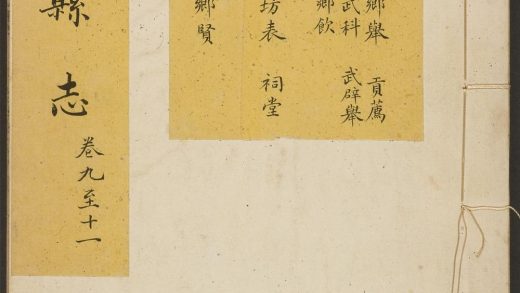 鄉舉 貢薦
武科 武辟舉
鄉飲
坊表 祠堂
鄉賢
縣志 卷九至十一